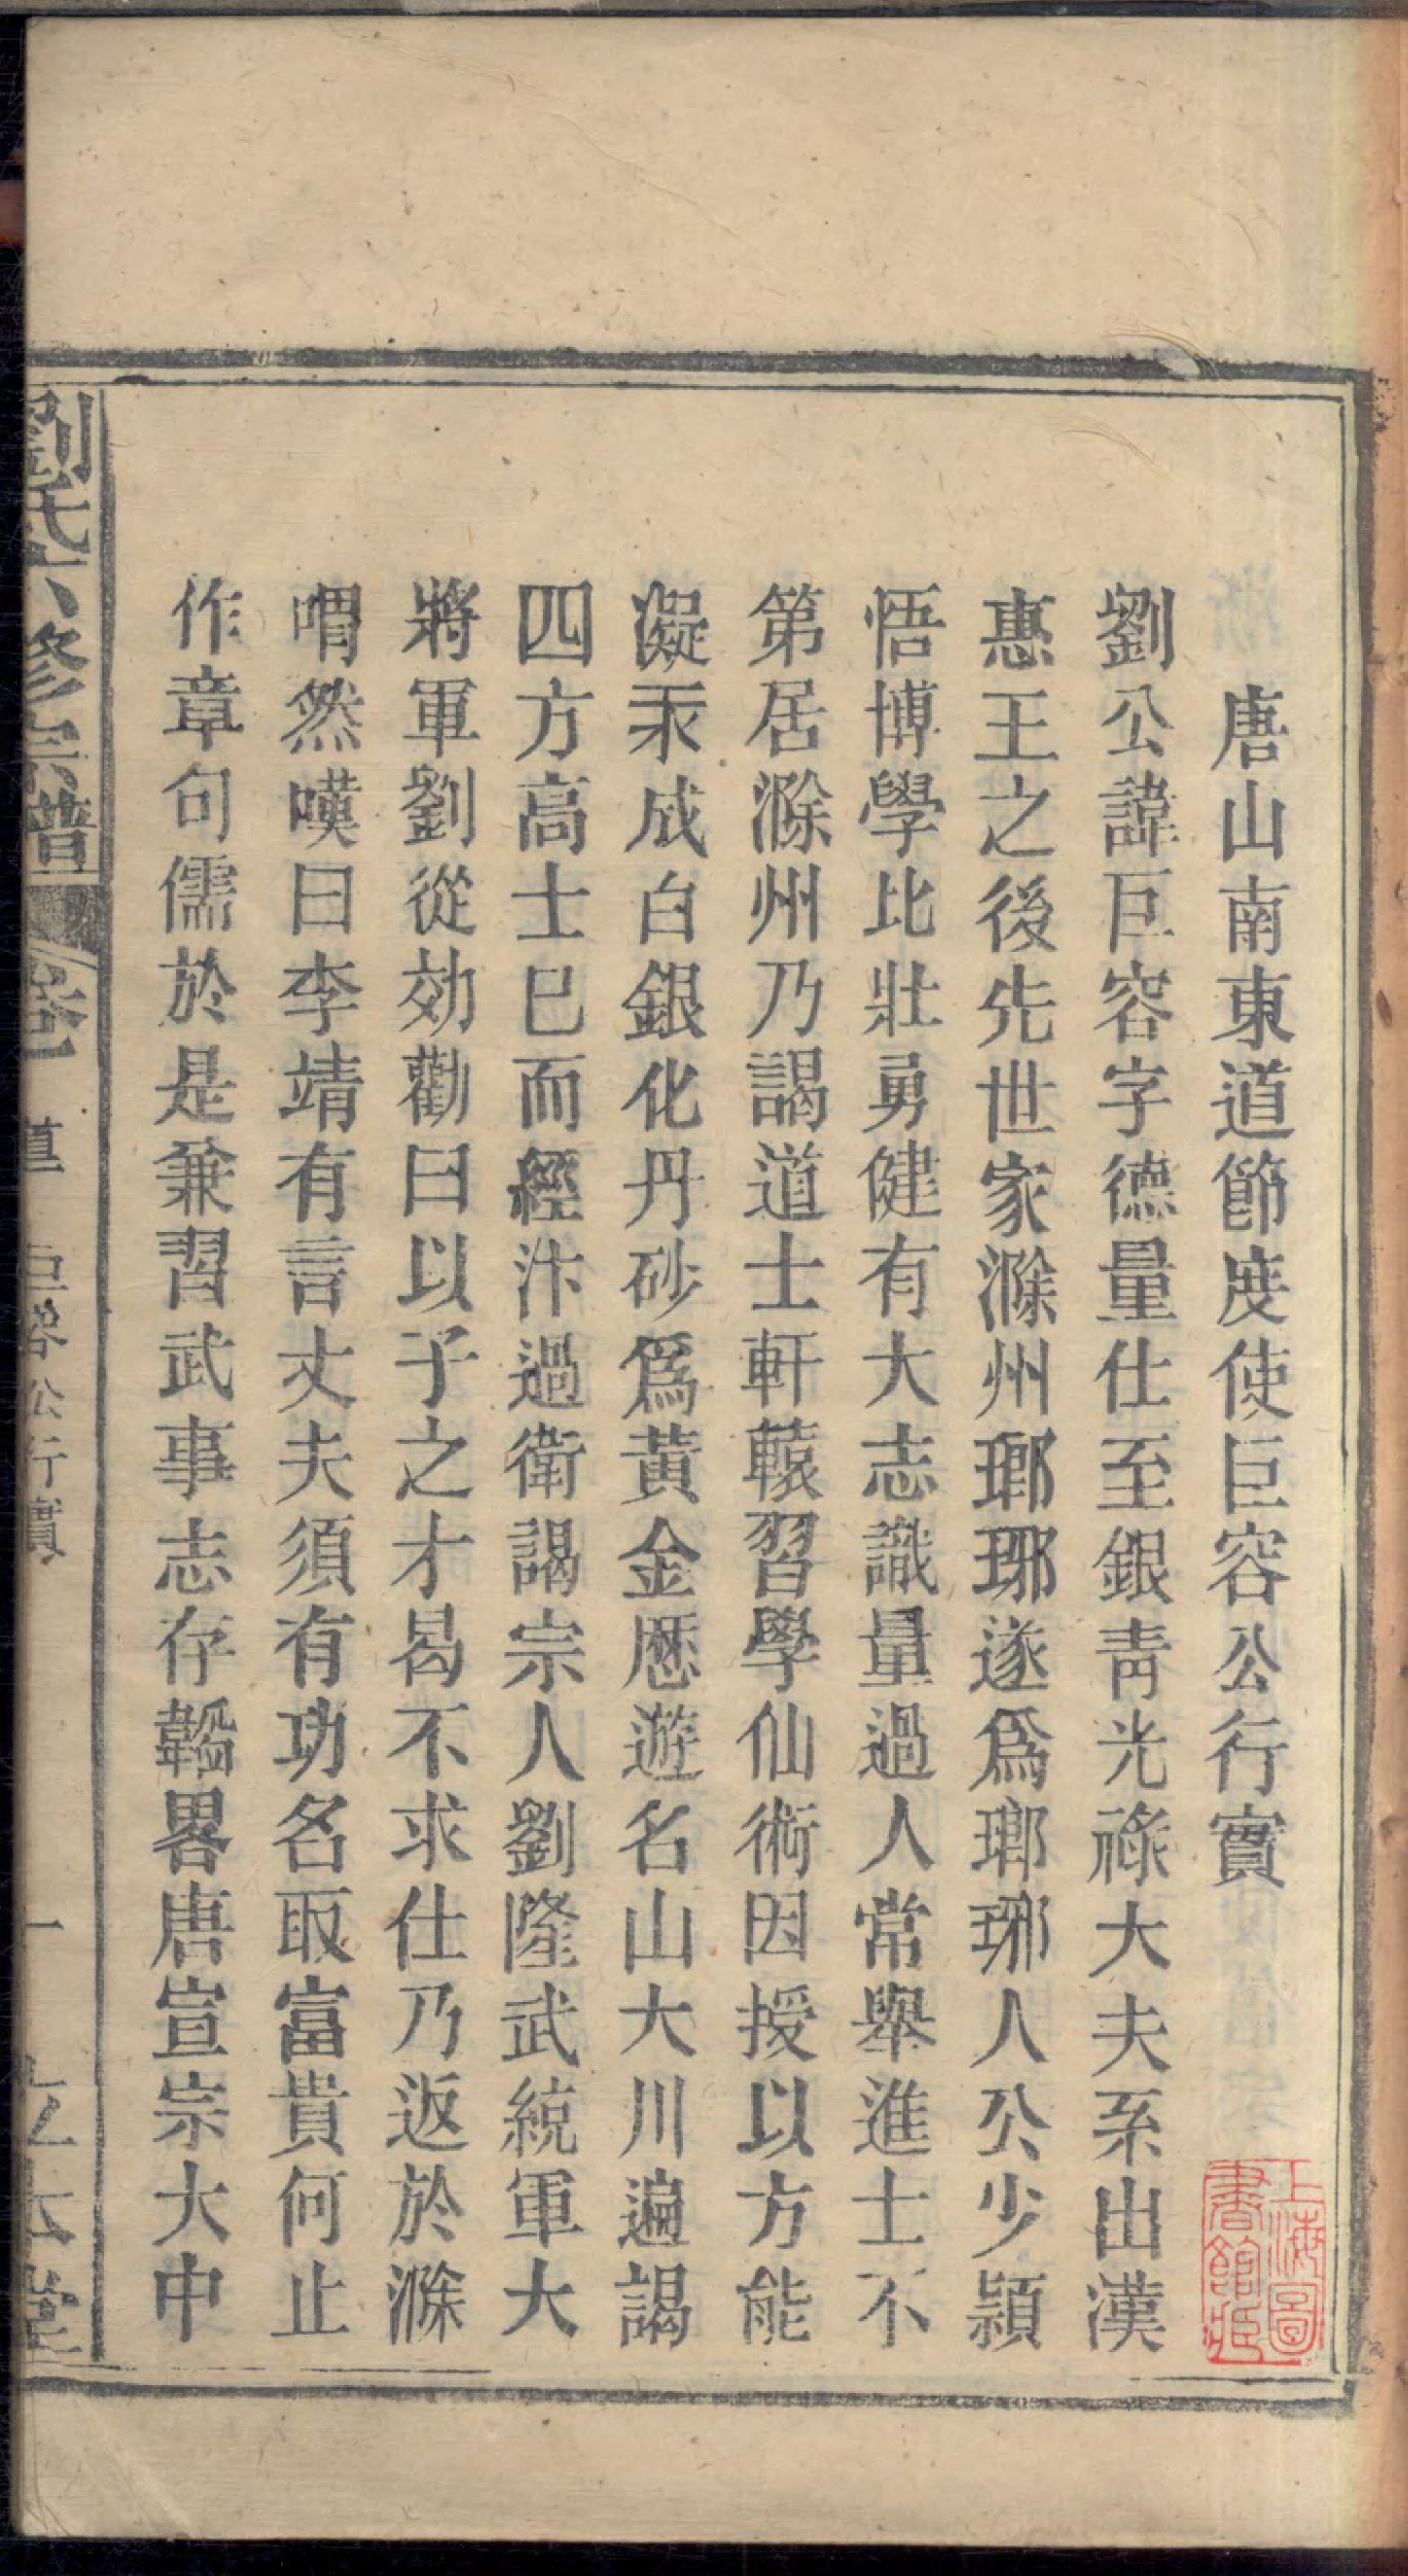 唐山南東道節度使巨容公行實
劉公諱巨容字德量仕至銀青光祿大夫系出漢
惠王之後先世家滁州瑯琊遂爲瑯琊人公少頴
悟博學比壯勇健有大志識量過人常舉進士不
第居滁州乃謁道士軒轅習學仙術因授以方能
凝汞成白銀化丹砂爲黃金歷遊名山大川遍謁
四方高士已而經汴過衛謁宗人劉隆武統軍大
將軍劉從効勸曰以子之才曷不求仕乃返於滁
喟然嘆曰李靖有言丈夫須有功名取富貴何止
作章句儒於是兼習武事志存韜畧唐宣宗大中
劉氏六修宗譜
卷一
巨容公行實
一
上海圖
書館藏